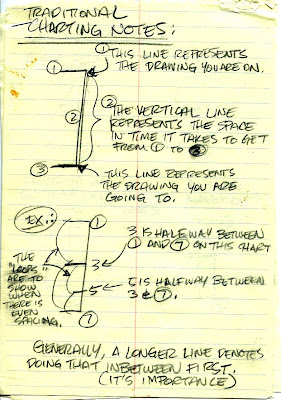 TRADITIONAL
CHARTING NOTES:
① THIS LINE REPRESENTS
THE DRAWING YOU ARE ON.
①
②
② THE VERTICAL LINE
REPRESENTS THE SPACE
IN TIME IT TAKES TO GET
FROM ① TO ③
③
THIS LINE REPRESENTS
THE DRAWING YOU ARE
GOING TO.
EX.:
①
3 IS HALFWAY BETWEEN
① AND ⑦ ON THIS CHART
THE
"LOOPS"
ARE TO
SHOW
WHEN
THERE IS
EVEN
SPACING.
3
5
IS HALFWAY BETWEEN
3 & ⑦.
⑦
GENERALLY, A LONGER LINE DENOTES
DOING THAT INBETWEEN FIRST.
(IT'S IMPORTANCE)